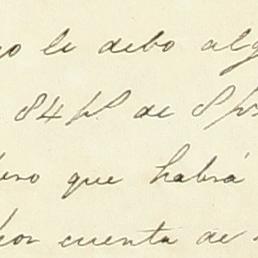 le debo alg
84 ps. de 8 ps
que habrá
por cuenta de